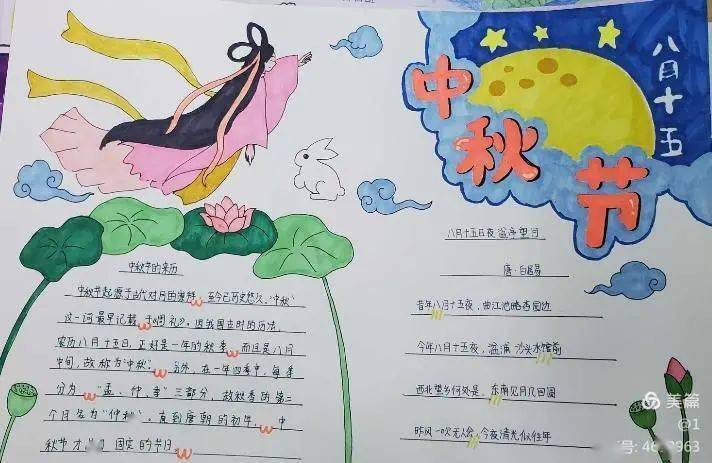 中秋节
八月十五
中秋节的来历
中秋节起源于古代对月的崇拜，至今已历史悠久，"中秋"
这一词最早记载于《周礼》。据我国古时的历法，
农历八月十五日，正好是一年的秋季，而且是八月
中旬，故称为"中秋"。另外，在一年四季中，每季
分为"孟、仲、季"三部分，故秋季的第二
个月名为"仲秋"。直到唐朝的初年，中
秋节才 固定的节日。
八月十五日夜湓亭望月
唐·白居易
昔年八月十五夜，曲江池畔杏园边
今年八月十五夜，湓浦沙头水馆前
西北望乡何处是，东南见月几回圆
昨风一吹无人会，今夜清光似往年
美篇
@1
号: 46
3963